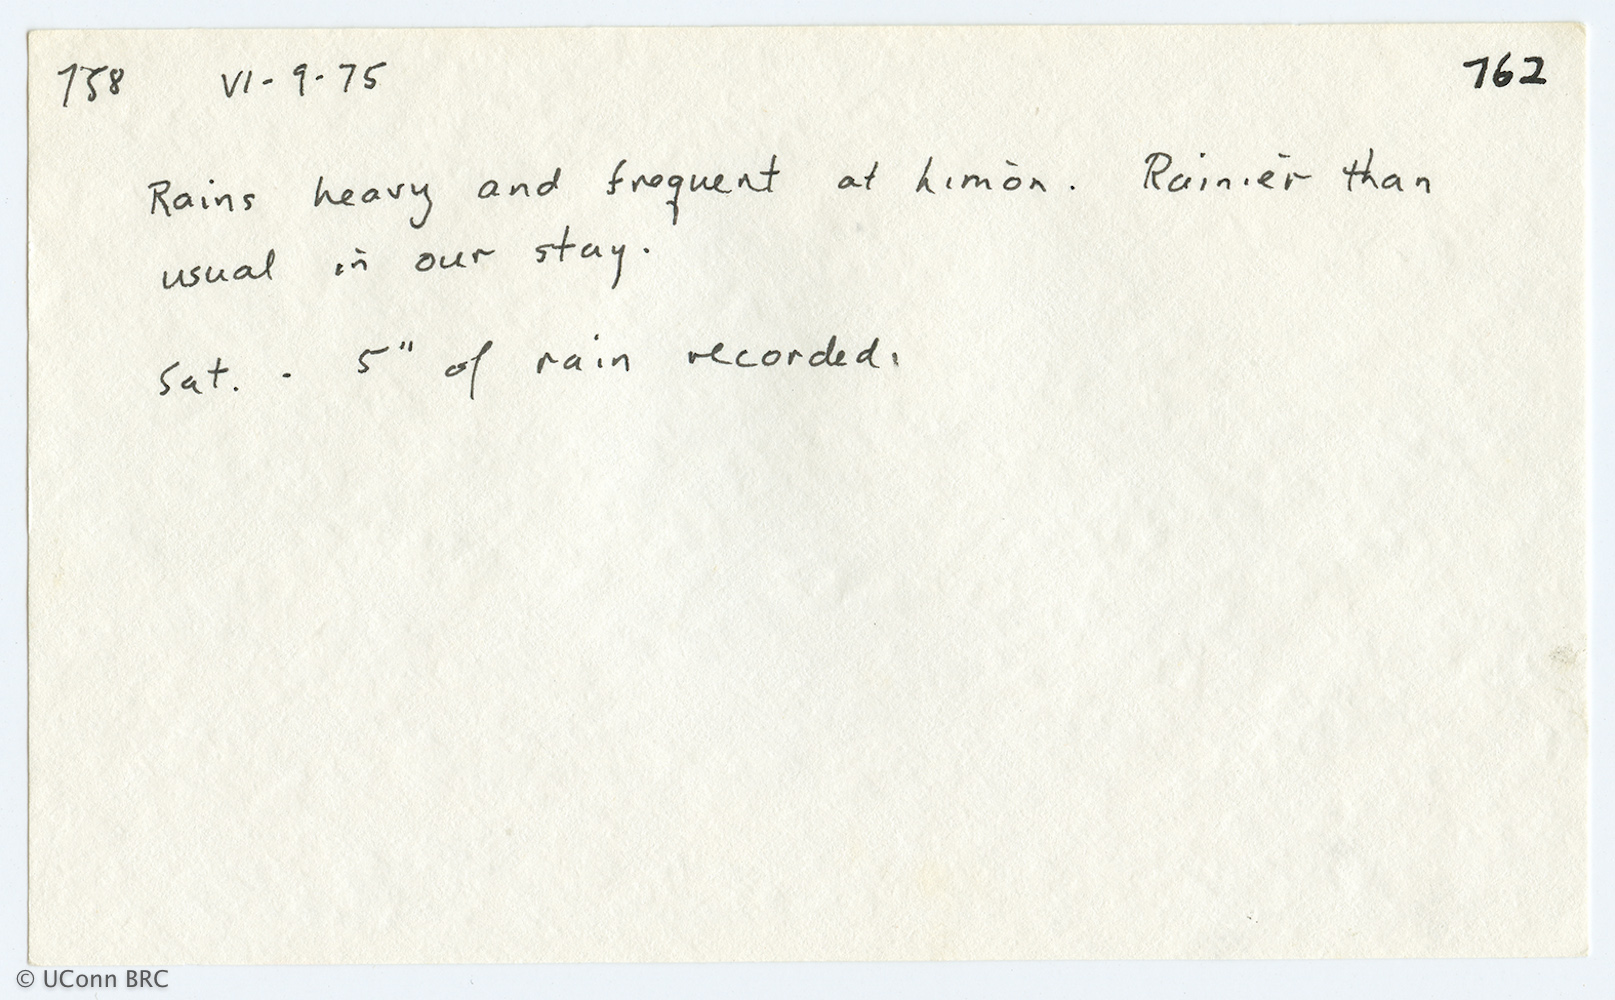 758 VI-9-75 762
Rains heavy and frequent at Limón. Rainier than
usual in our stay.
Sat. - 5" of rain recorded.
© UConn BRC